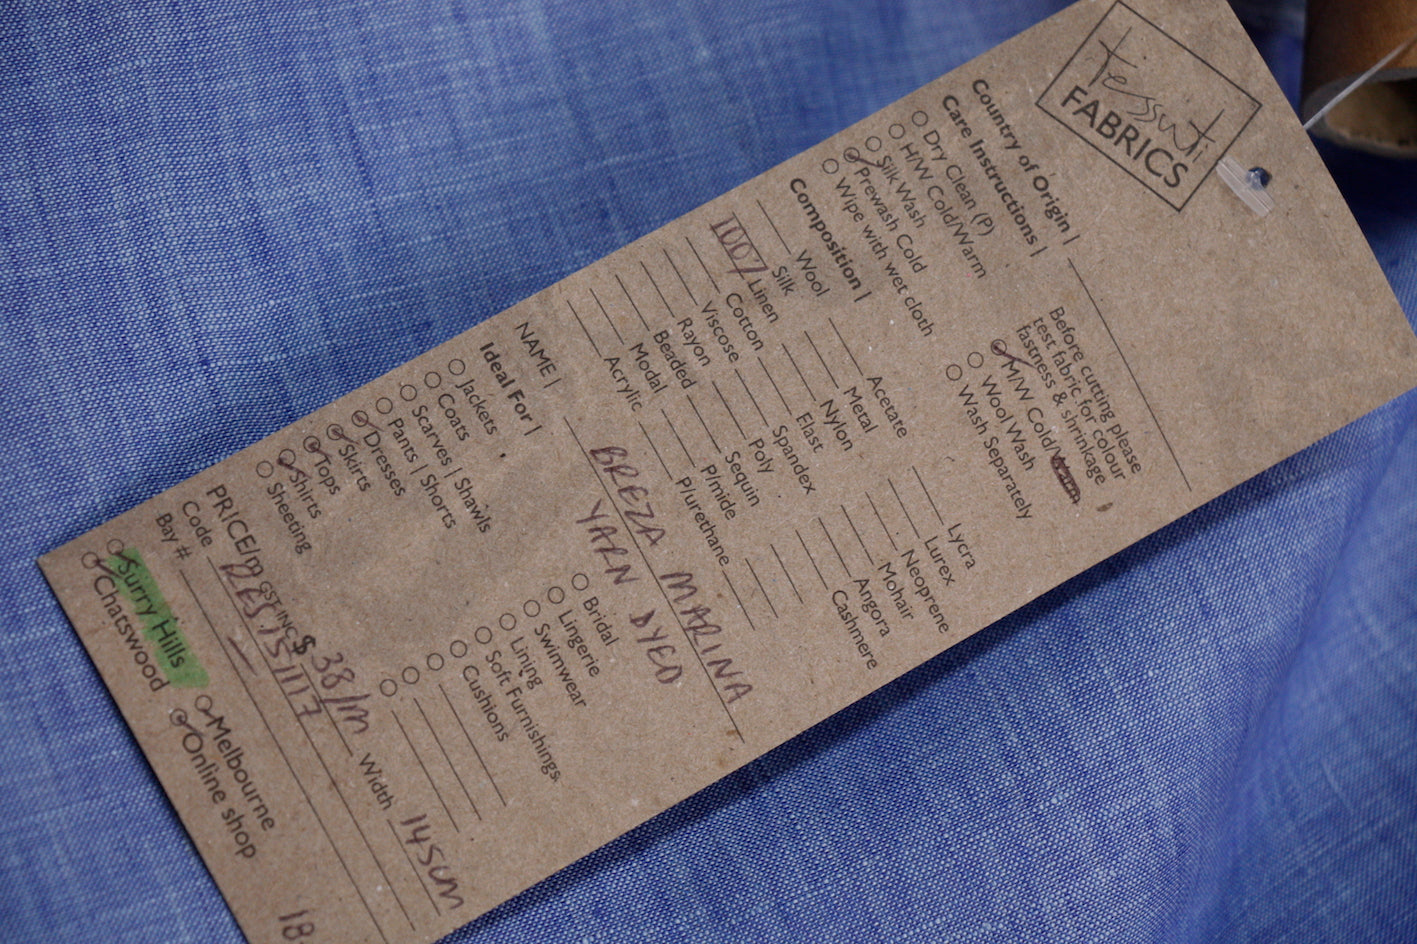 tessuti
FABRICS
Country of Origin |
Care Instructions |
Dry Clean (P)
H/W Cold/Warm
Silk Wash
Prewash Cold
Wipe with wet cloth
Before cutting please
test fabric for colour
fastness & shrinkage
M/W Cold/Warm
Wool Wash
Wash Separately
Composition |
Wool
Silk
100% Linen
Cotton
Viscose
Rayon
Beaded
Modal
Acrylic
Acetate
Metal
Nylon
Elast
Spandex
Poly
Sequin
P/mide
P/urethane
Lycra
Lurex
Neoprene
Mohair
Angora
Cashmere
NAME | BREZA MARINA
YARN DYED
Ideal For |
Jackets
Coats
Scarves | Shawls
Pants | Shorts
Dresses
Skirts
Tops
Shirts
Sheeting
Bridal
Lingerie
Swimwear
Lining
Soft Furnishings
Cushions
PRICE/m GST INC $ 38/m Width 145cm
Code
Bay #
Surry Hills
Chatswood
Melbourne
Online shop